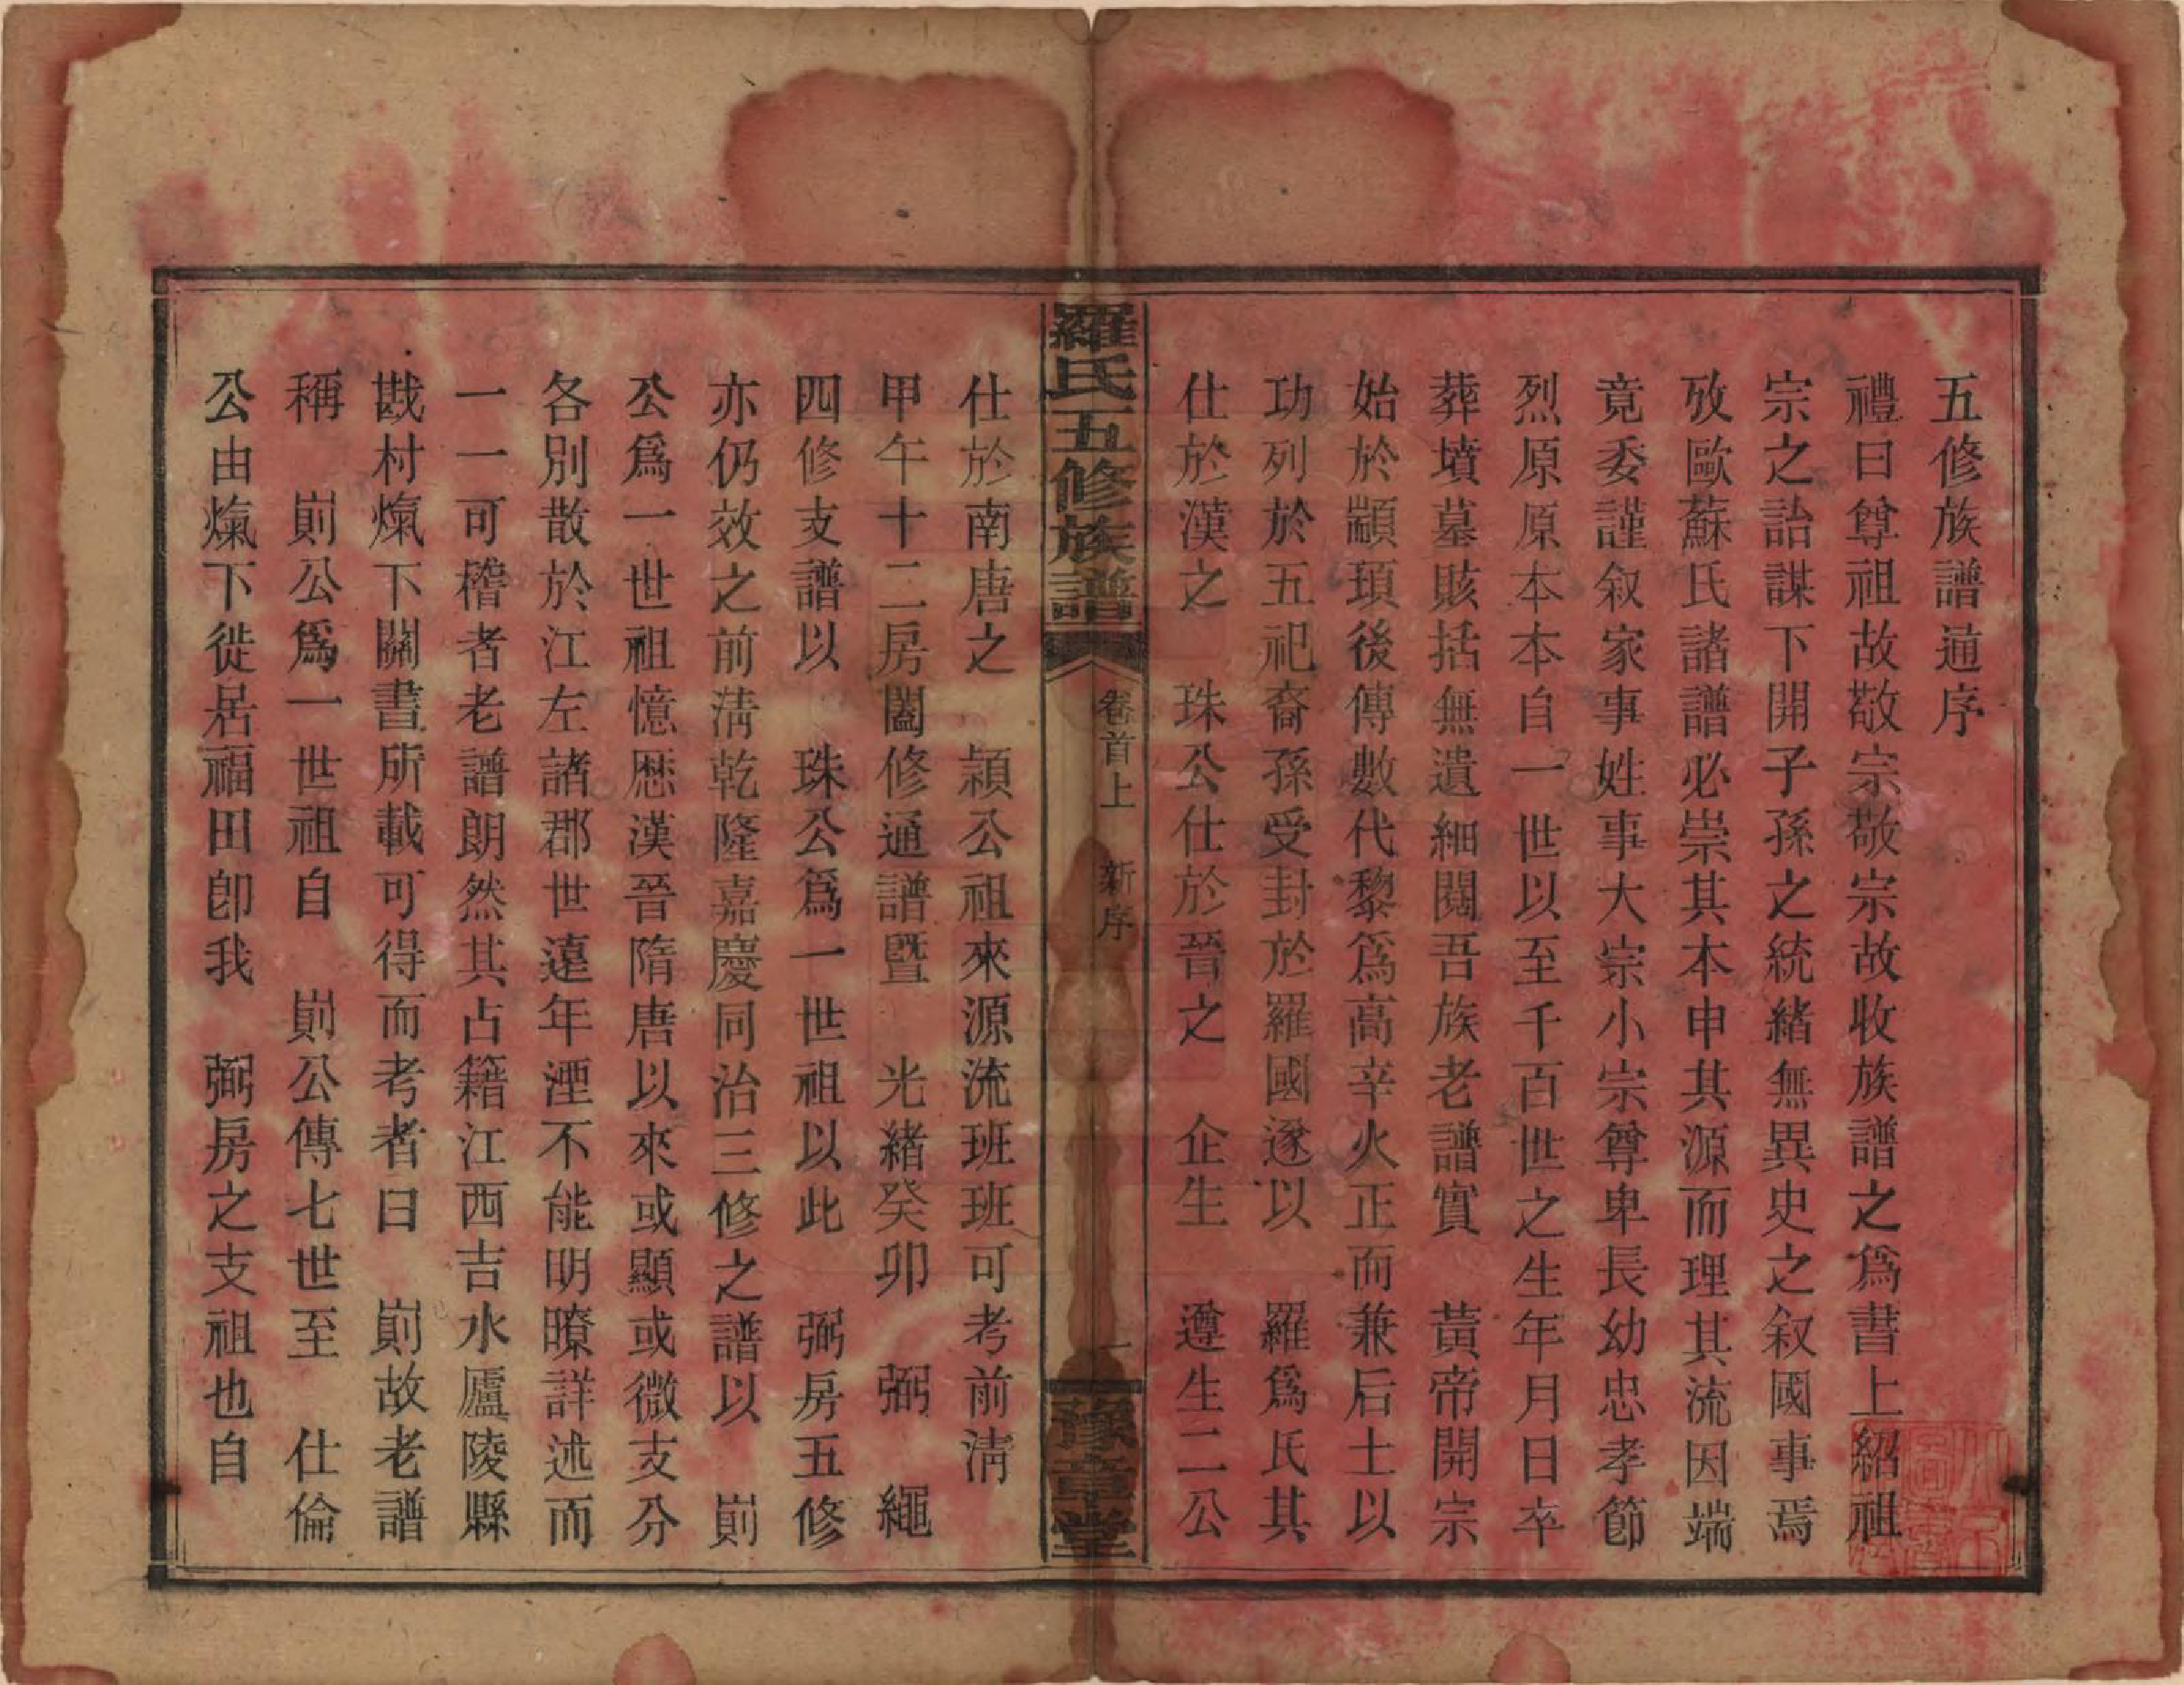 五修族譜通序
禮曰尊祖故敬宗敬宗故收族譜之爲書上紹祖
宗之詒謀下開子孫之統緒無異史之叙國事焉
攷歐蘇氏諸譜必崇其本申其源而理其流因端
竟委謹叙家事姓事大宗小宗尊卑長幼忠孝節
烈原原本本自一世以至千百世之生年月日卒
葬墳墓賅括無遺細閱吾族老譜實　黃帝開宗
始於顓頊後傳數代黎爲高辛火正而兼后土以
功列於五祀裔孫受封於羅國遂以　羅爲氏其
仕於漢之　珠公仕於晉之　企生　遵生二公
羅氏五修族譜
卷首上　新序
一
豫章堂
仕於南唐之　頴公祖來源流班班可考前淸
甲午十二房闔修通譜暨　光緒癸卯　弼　繩
四修支譜以　珠公爲一世祖以此　弼房五修
亦仍效之前淸乾隆嘉慶同治三修之譜以　崱
公爲一世祖憶厯漢晉隋唐以來或顯或微支分
各別散於江左諸郡世遠年湮不能明瞭詳述而
一一可稽者老譜朗然其占籍江西吉水廬陵縣
戥村㷟下關書所載可得而考者曰　崱故老譜
稱　崱公爲一世祖自　崱公傳七世至　仕倫
公由㷟下徙居福田卽我　弼房之支祖也自